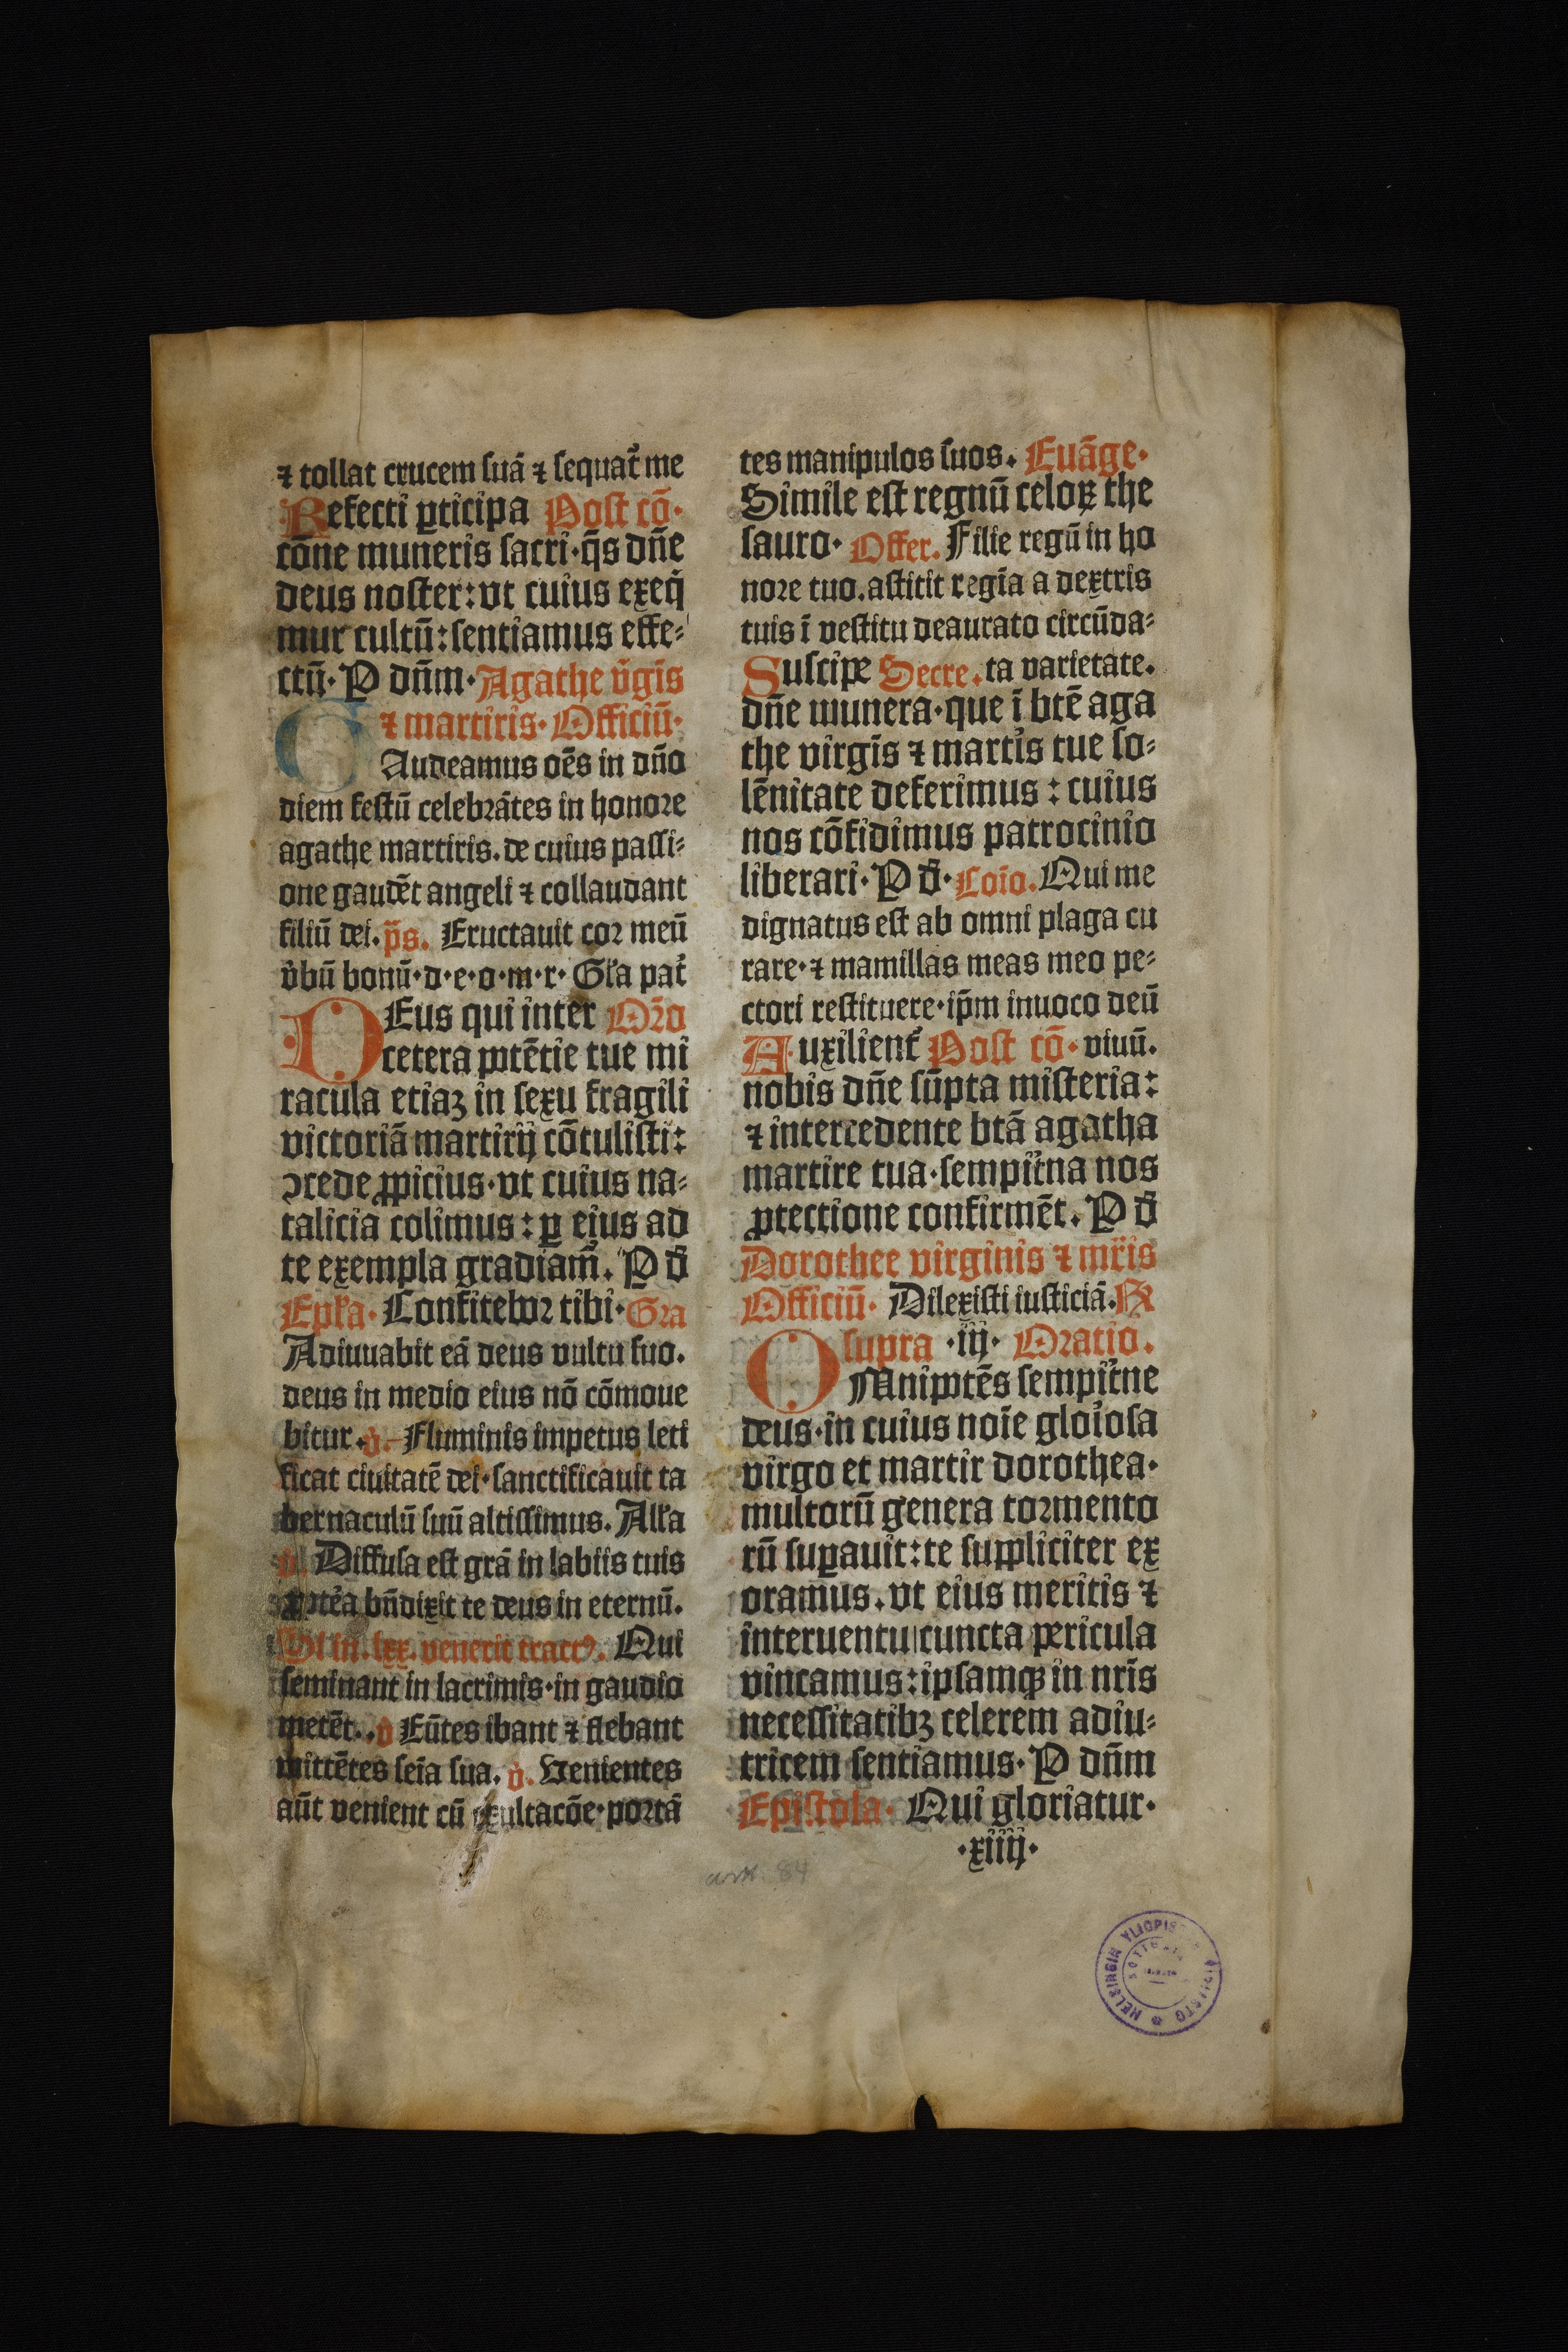 ⁊ tollat crucem suā ⁊ sequat᷑ me
Refecti ꝑticipa Post cō·
cōne muneris sacri·q̄s dn̄e
deus noster: vt cuius exeq̄
mur cultū: sentiamus effe-
ctū· P dn̄m· Agathe v̄gīs
⁊ martiris· Officiū·
GAudeamus oēs in dn̄o
diem festū celebrātes in honore
agathe martiris. de cuius passi-
one gaudēt angeli ⁊ collaudant
filiū dei. p̄s. Eructauit cor meū
v̄bū bonū·d·e·o·m·r· Gl̄a pat᷑
DEus qui inter Or̄o
cetera potētie tue mi
racula etiaꝫ in sexu fragili
victoriā martirij cōtulisti:
ꝯcede ꝓpicius·vt cuius na-
talicia colimus: ꝑ eius ad
te exempla gradiam᷑. P d̄
Epl̄a· Confitebor tibi· Gra
Adiuuabit eā deus vultu suo.
deus in medio eius nō cōmoue
bitur. v̄. Fluminis impetus leti
ficat ciuitatē dei·sanctificauit ta
bernaculū suū altissimus. All̄a
v̄. Diffusa est grā in labiis tuis
ꝓptēa bn̄dixit te deus in eternū.
Si in .lxx. venerit tractꝰ. Qui
seminant in lacrimis·in gaudio
metēt.. v̄ Eūtes ibant ⁊ flebant
mittētes seīa sua. v̄. Venientes
aūt venient cū exultacōe·portā
tes manipulos suos. Euāge·
Simile est regnū celoꝝ the
sauro· Offer. Filie regū in ho
nore tuo. astitit regīa a dextris
tuis ī vestitu deaurato circūda-
Suscipe Secre. ta varietate.
dn̄e munera·que ī btē aga
the virgīs ⁊ martīs tue so-
lēnitate deferimus: cuius
nos cōfidimus patrocinio
liberari· P d̄· Coīo. Qui me
dignatus est ab omni plaga cu
rare·⁊ mamillas meas meo pe-
ctori restituere·ip̄m inuoco deū
Auxilient᷑ Post cō· viuū.
nobis dn̄e sūpta misteria:
⁊ intercedente btā agatha
martire tua·sempit᷑na nos
ꝓtectione confirmēt. P d̄
Dorothee virginis ⁊ mr̄is
Officiū· Dilexisti iusticiā. R
supra ·iij· Oratio.
OMnipotēs sempit᷑ne
deus·in cuius noīe gloīosa
virgo et martir dorothea·
multorū genera tormento
rū suꝑauit: te suppliciter ex
oramus. vt eius meritis ⁊
interuentu cuncta pericula
vincamus: ipsamqꝫ in nr̄is
necessitatibꝫ celerem adiu-
tricem sentiamus· P dn̄m
Epistola· Qui gloriatur·
·xiiij·
84
HELSINGIN YLIOPISTO